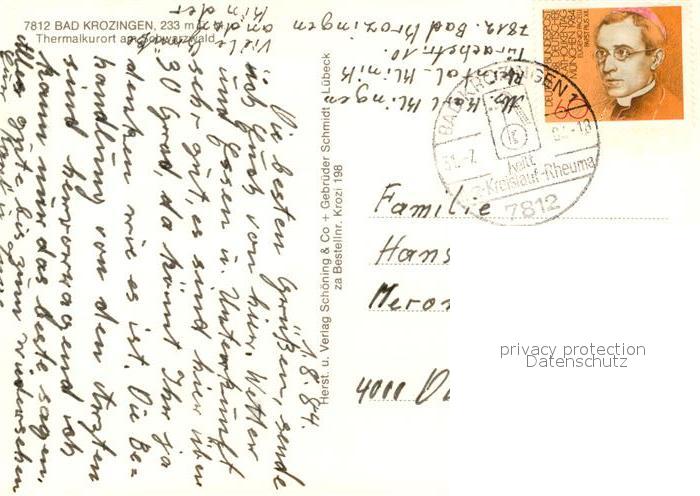 7812 BAD KROZINGEN, 233 m
Thermalkurort am Schwarzwald
1.8.84.
Die besten Grüßen, sende
ich Euch von hier. Wetter
und Essen u. Unterkunft
sehr gut, es sind hier über
30 Grad, da könnt Ihr ja
denken wie es ist. Die Be=
handlung von den Ärzten
sind hervorragend ich
kann nur das beste sagen.
Alles gute bis zum Wiedersehen
Viele
an die
Kinder
Karl Klingen
Rheintal-Klinik
10.
7812. Bad Krozingen
Herst. u. Verlag Schöning & Co + Gebrüder Schmidt · Lübeck
za Bestellnr. Krozi 198
BAD KROZINGEN 1
31.-7. 84.-18
heilt
Kreislauf-Rheuma
7812
60
Familie
Hans
4000
privacy protection
Datenschutz